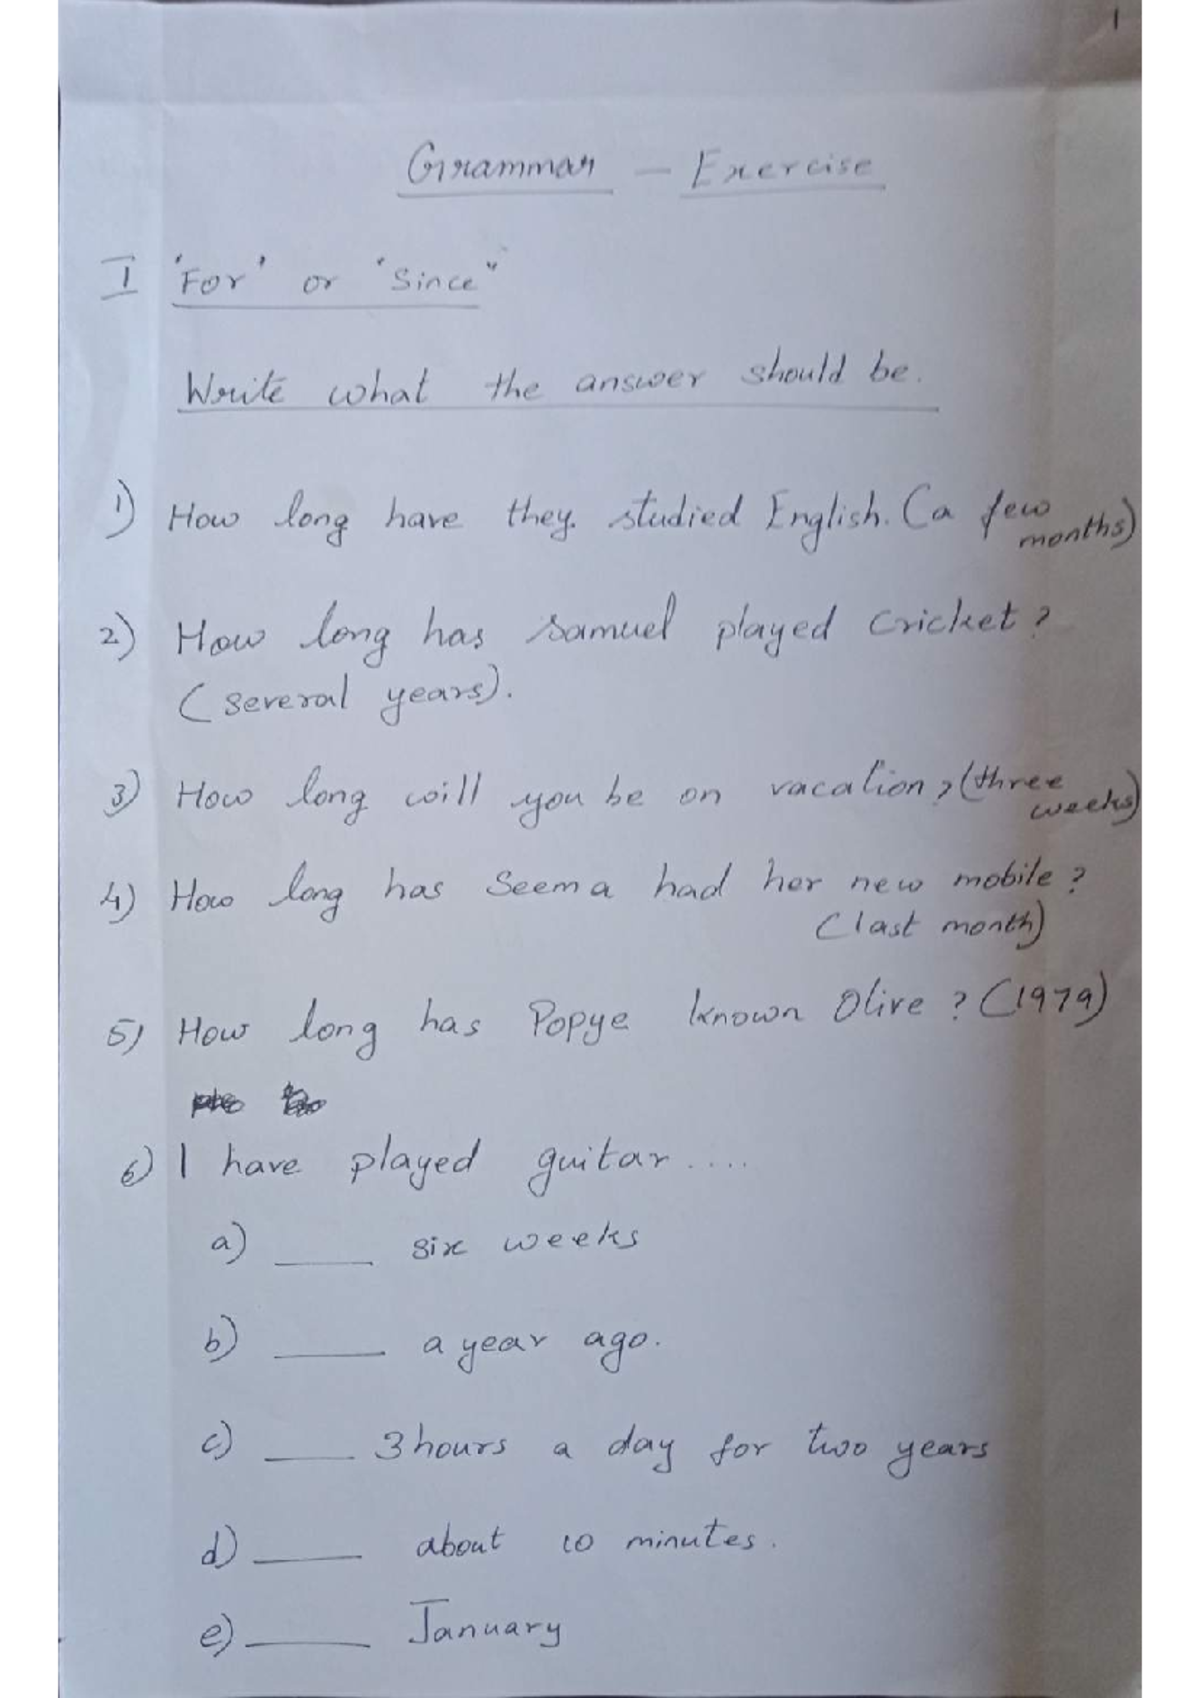 1
Grammar - Exercise
I 'For' or 'Since"
Write what the answer should be.
1) How long have they. studied English. (a few
months)
2) How long has Samuel played Cricket?
(several years).
3) How long will you be on vacation? (three
weeks)
4) How long has Seema had her new mobile?
(last month)
5) How long has Popye known Olive? (1979)
6) I have played guitar....
a) ____ six weeks
b) ____ a year ago.
c) ____ 3 hours a day for two years
d) ____ about 10 minutes.
e) ____ January